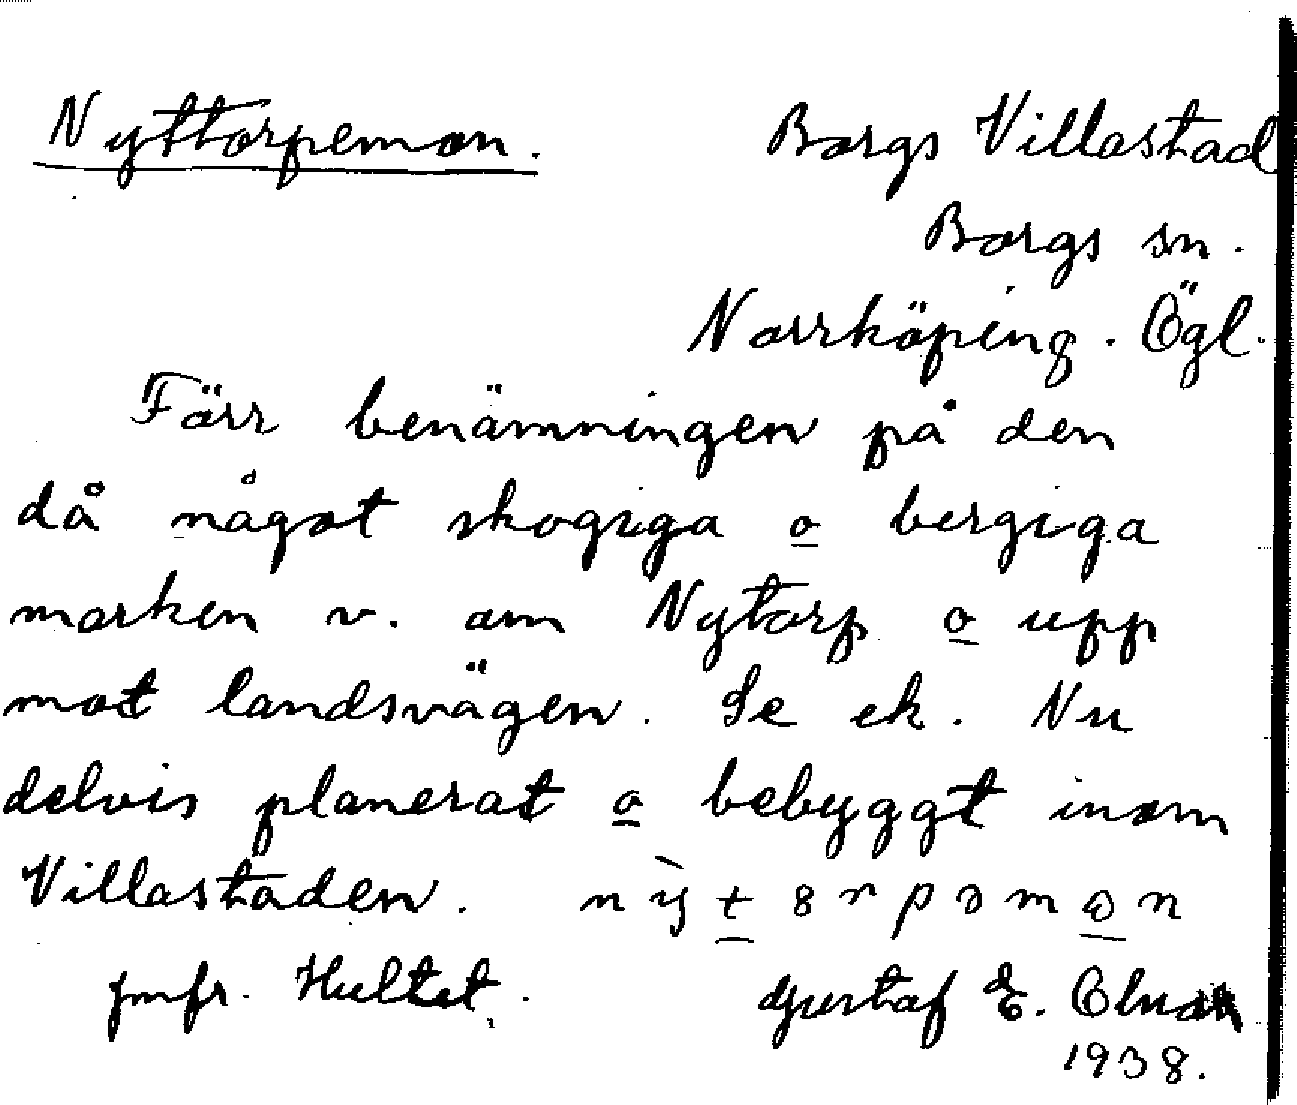 Nyttorpemon. Borgs Villastad
Borgs sn.
Norrköping. Ögl.
Förr benämningen på den
då något skogiga o bergiga
marken v. om Nytorp o upp
mot landsvägen. Se ek. Nu
delvis planerat o bebyggt inom
Villastaden.
jmfr. Hultet. Gustaf E.
1938.